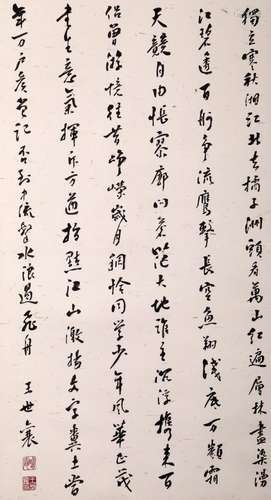 獨立寒秋湘江北去橘子洲頭看萬山紅遍層林盡染漫
江碧透百舸争流鷹擊長空魚翔淺底万類霜
天競自由悵寥廓问蒼茫大地誰主沉浮携来百
侣曾游憶往昔崢嶸歲月稠恰同学少年風華正茂
書生意氣揮斥方遒指點江山激揚文字糞土當
年万户矦曾記否到中流擊水浪遏飛舟 王世襄